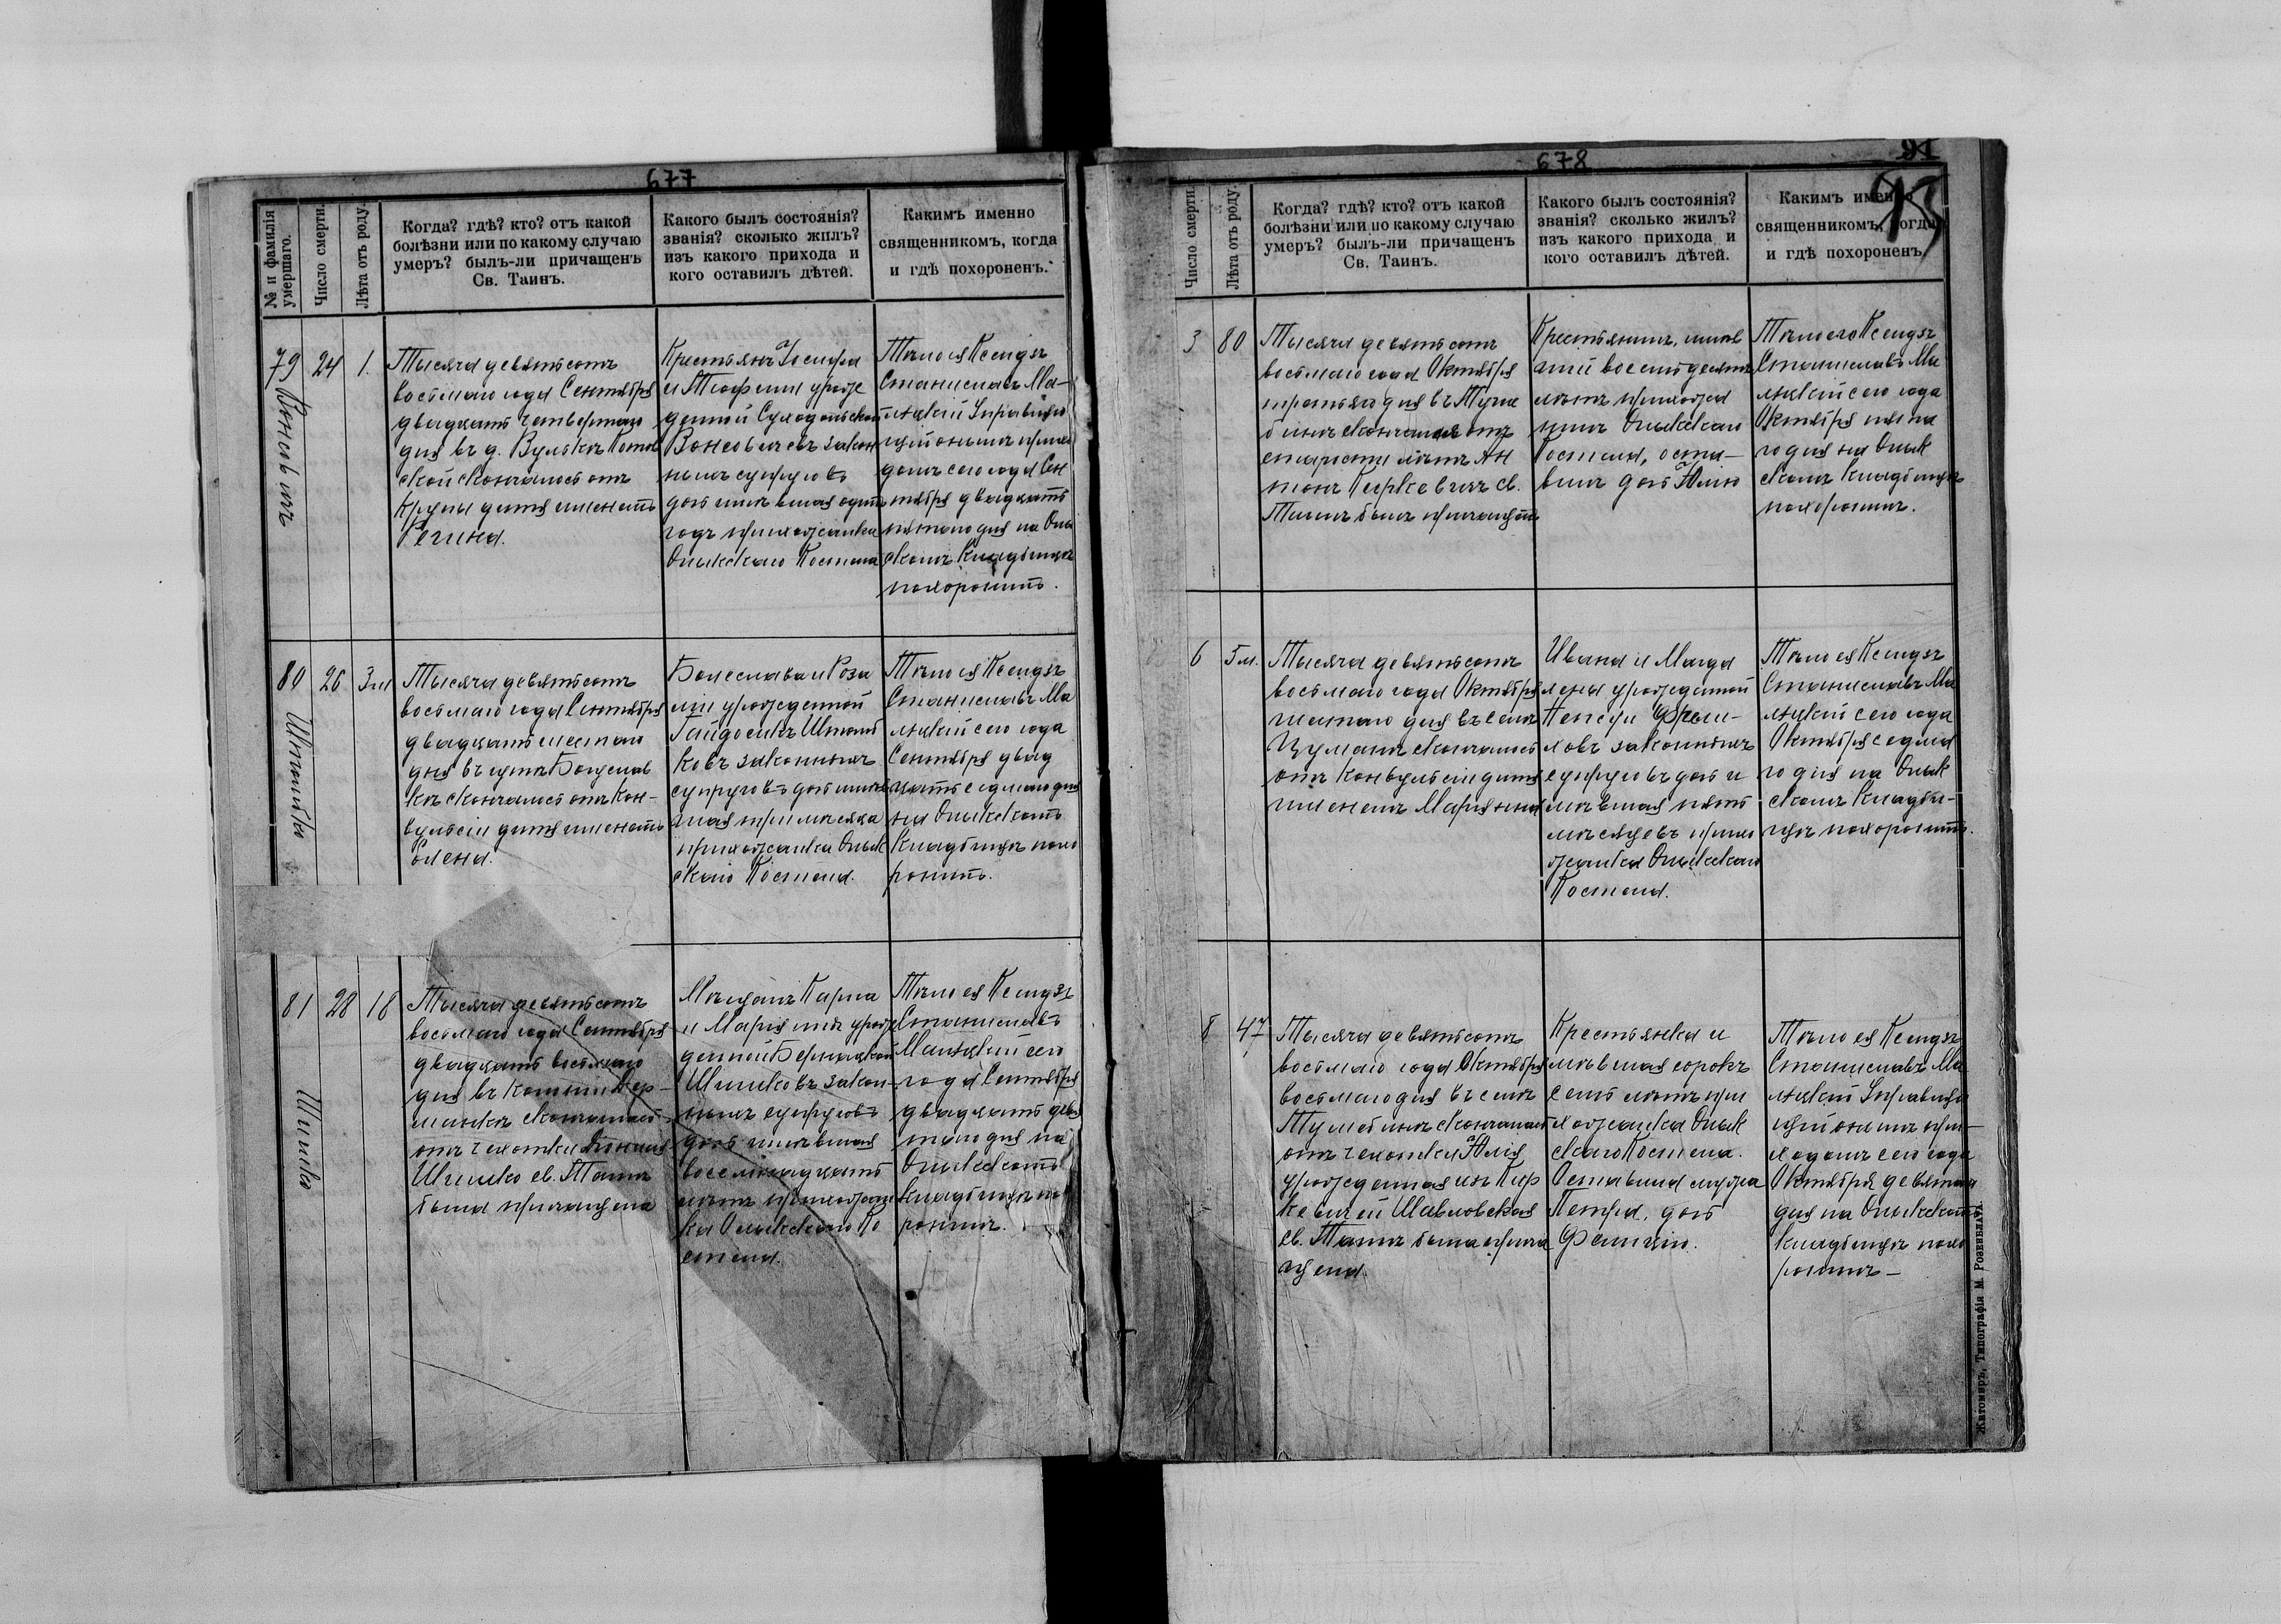 677
№ и фамилія умершаго.
Число смерти.
Лѣта отъ роду.
Когда? гдѣ? кто? отъ какой
болѣзни или по какому случаю
умеръ? былъ-ли причащенъ
Св. Таинъ.
Какого былъ состоянія?
званія? сколько жилъ?
изъ какого прихода и
кого оставилъ дѣтей.
Какимъ именно
священникомъ, когда
и гдѣ похороненъ.
79
24
1.
Тысяча девятьсотъ
восьмаго года Сентября
двадцать четвертаго
дня въ д. Вулькѣ Котов
ской скончалось отъ
Крупы дитя именемъ
Регина.
Крестьянъ Іосифа
и Теофили урож
денной Суходольской
законн
ныхъ супруговъ
дочь имѣвшая одинъ
годъ прихожанка
Олыкскаго Костела
Тѣло ея Ксендзъ
Станиславъ Ма-
лицкій Управляю
щій онымъ прихо
домъ сего года Сен
тября двадцать
пятаго дня на Олы
скомъ Кладбищѣ
похоронилъ.
80
26
3 м
Штомпко
Тысяча девятьсотъ
восьмаго года Сентября
двадцать шестаго
дня въ Богуслав
кѣ скончалось отъ Кон-
вульсіи дитя именемъ
Олена.
Болеслава и Роза
ліи урожденной
Гайдосикъ Штомп
ковъ законныхъ
супруговъ дочь имѣв
шая три мѣсяца
прихожанка Олык
скаго Костела.
Тѣло ея Ксендзъ
Станиславъ Ма
лицкій сего года
Сентября двад
цать седьмаго дня
на Олыкскомъ
Кладбищѣ похо
ронилъ.
81
28
18
Шишко
Тысяча девятьсотъ
восьмаго года Сентября
двадцать восьмаго
дня въ колоніи Дер-
манкѣ скончалась
отъ чахотки
Шишко св. Таинъ
была причащена
Мѣщанъ Карла
и Маріянны урож
денной
Шишковъ закон-
ныхъ супруговъ
дочь имѣвшая
восемнадцать
лѣтъ прихожан
ка Олыкскаго Ко
стела.
Тѣло ея Ксендзъ
Станиславъ
Малицкій сего
года Сентября
двадцать девя
таго дня на
Олыкскомъ
Кладбищѣ похо
ронилъ.
678
91
Число смерти.
Лѣта отъ роду.
Когда? гдѣ? кто? отъ какой
болѣзни или по какому случаю
умеръ? былъ-ли причащенъ
Св. Таинъ.
Какого былъ состоянія?
званія? сколько жилъ?
изъ какого прихода и
кого оставилъ дѣтей.
Какимъ именно
священникомъ, когда
и гдѣ похороненъ.
3
80
Тысяча девятьсотъ
восьмаго года Октября
третьяго дня въ Туме
бинѣ скончался отъ
старости лѣтъ Ан
тонъ Киркевичъ св.
Таинъ былъ причащенъ
Крестьянинъ, имѣв
шій восемьдесятъ
лѣтъ прихожа
нинъ Олыкскаго
Костела, оста-
вилъ дочь Юлію
Тѣло его Ксендзъ
Станиславъ Ма
лицкій сего года
Октября пята
го дня на Олык
скомъ Кладбищѣ
похоронилъ.
6
5 м.
Тысяча девятьсотъ
восьмаго года Октября
шестаго дня въ селѣ
Цумань скончалось
отъ Конвульсіи дитя
именемъ Маріянна
Ивана и Магда
лены урожденной
законныхъ
супруговъ дочь и
мѣвшая пять
мѣсяцевъ прихо
жанка Олыкскаго
Костела.
Тѣло ея Ксендзъ
Станиславъ Ма
лицкій сего года
Октября седьма
го дня на Олык
скомъ Кладби-
щѣ похоронилъ.
8
47
Тысяча девятьсотъ
восьмаго года Октября
восьмаго дня въ селѣ
Тумебинѣ скончалась
отъ чахотки Юлія
урожденная изъ Кир
кевичей Шавловская
св. Таинъ была прича
щена.
Крестьянка и
мѣвшая сорокъ
семь лѣтъ при
хожанка Олык
скаго Костела.
Оставила мужа
Петра, дочь
Фелицію.
Тѣло ея Ксендзъ
Станиславъ Ма
лицкій Управляю
щій онымъ при-
ходомъ сего года
Октября девятаго
дня на Олыкскомъ
Кладбищѣ похо
ронилъ-
Житомиръ, Типографія М. Розенблата.